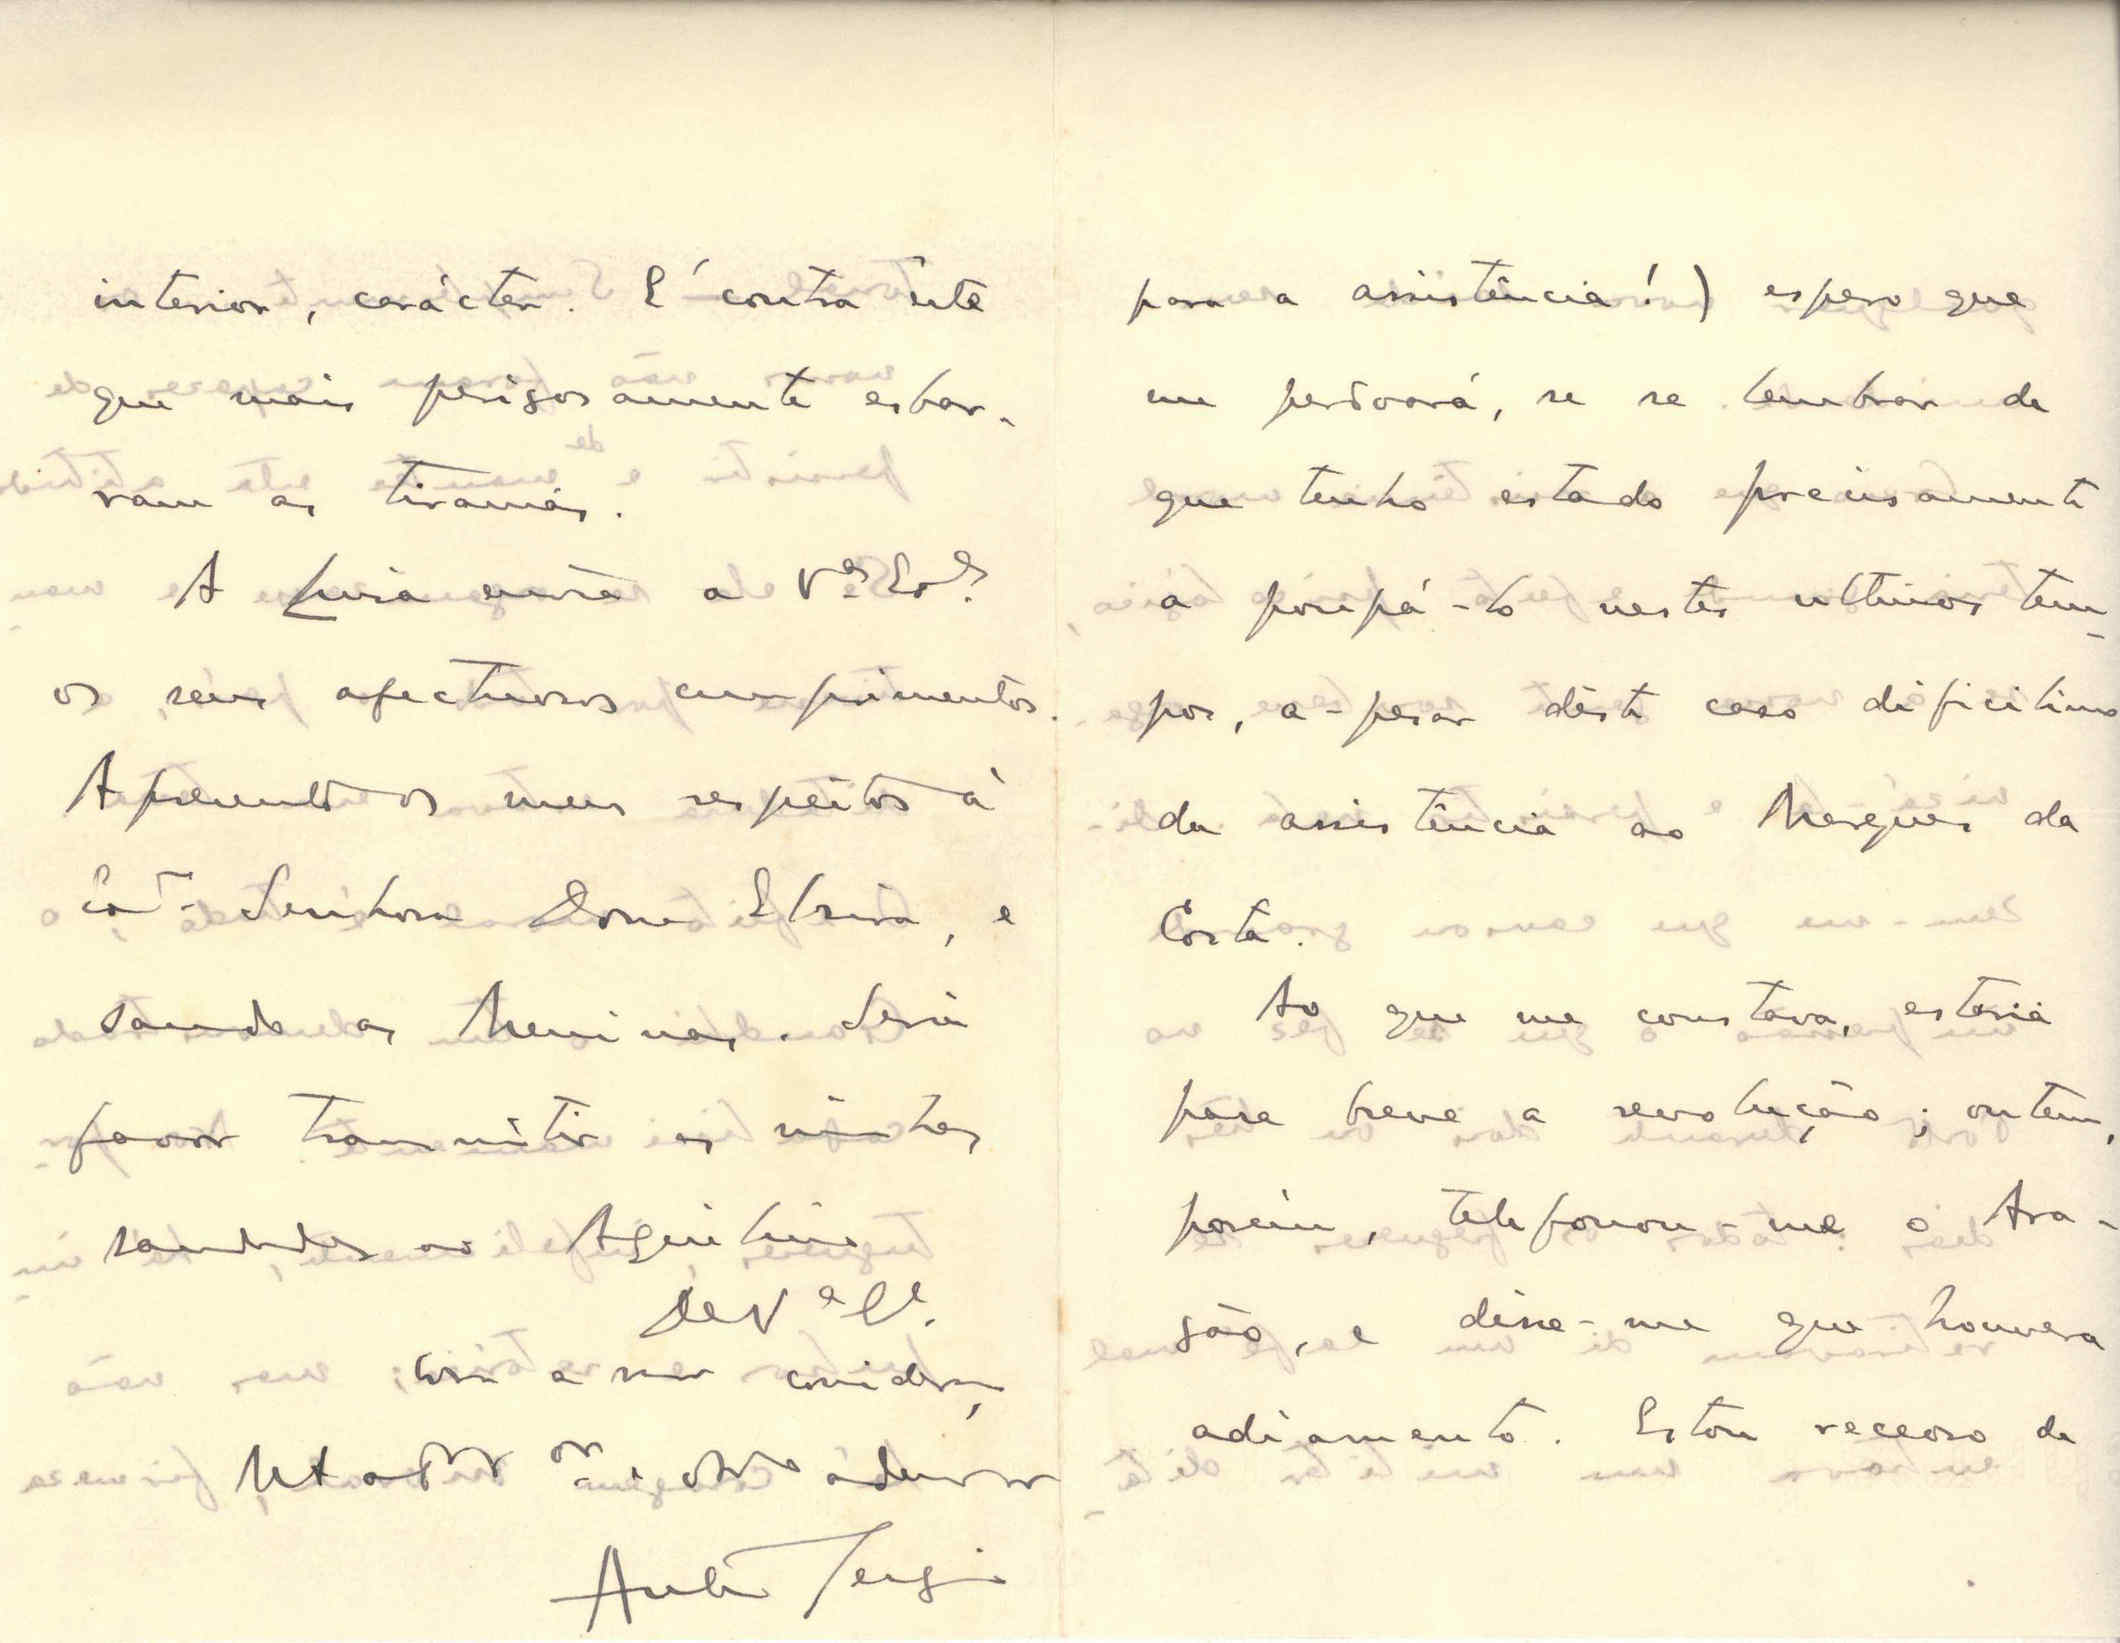 interior, carácter. É contra êste
que mais perigosamente esbar-
ram as tiranias.
A Luísa envia a V.as Ex.as
os seus afectuosos cumprimentos.
Apresento os meus respeitos à
Ex.ma Senhora Dona Elzira, e
saúdo as Meninas. Seria
favor transmitir as minhas
saudades ao Aquilino
De V.a Ex.a
com a maior consider.
Mt.o am.o e admor
António Sérgio
para a assistência!) espero que
me perdoará, se se lembrar de
que tenho estado precisamente
a poupá-lo nestes ultimos tem-
pos, a-pesar dêste caso dificílimo
da assistência ao Marques da
Costa.
Ao que me constava, estaria
para breve a revolução; ontem,
porém, telefonou-me o Ara-
gão, e disse-me que houvera
adiamento. Estou receoso de